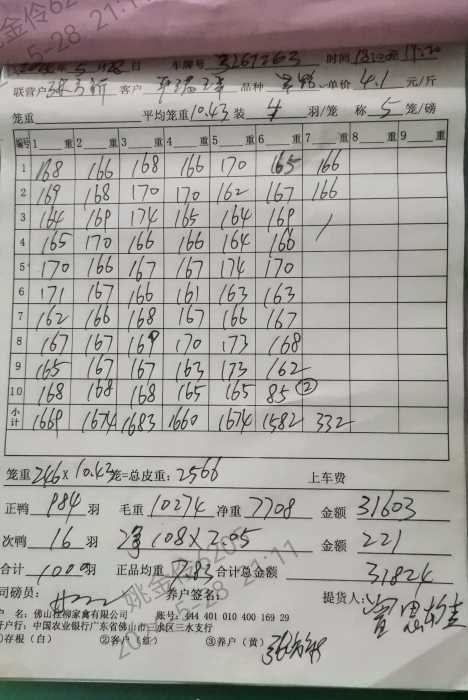 2025年5月28日 车牌号 3267263 时间 18:00 19:20
联营户 客户 品种 单价 4.1 元/斤
笼重 平均笼重 10.43 装 4 羽/笼 称 5 笼/磅
编号 1 重 2 重 3 重 4 重 5 重 6 重 7 重 8 重 9 重
1 168 166 168 166 170 165 166
2 169 168 170 170 162 167 166
3 164 169 174 165 164 169 /
4 165 170 166 166 164 166
5 170 166 167 167 174 170
6 171 167 166 161 163 163
7 162 166 168 167 166 167
8 167 167 169 170 173 168
9 165 167 167 163 173 162
10 168 168 168 165 165 85 ②
小计 1669 1674 1683 1660 1674 1582 332
笼重 246 × 10.43 笼=总皮重: 2566 上车费
正鸭 984 羽 毛重 10274 净重 7708 金额 31603
次鸭 16 羽 净 108 × 2.05 金额 221
合计 1000 羽 正品均重 7.83 合计总金额 31824
司磅员: 养户签名: 提货人:
户 名: 佛山桂柳家禽有限公司 账号: 444 401 010 400 169 29
开户行: 中国农业银行广东省佛山市三水区三水支行
①存根(白) ②客户(红) ③养户(黄)
姚金伶6205
5-28 21:11
姚金伶6205
5-28 21:11